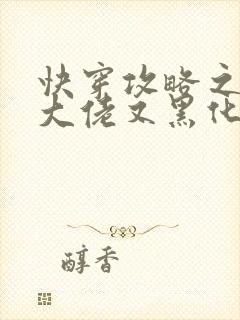 快穿攻略之
大佬又黑化
醇香